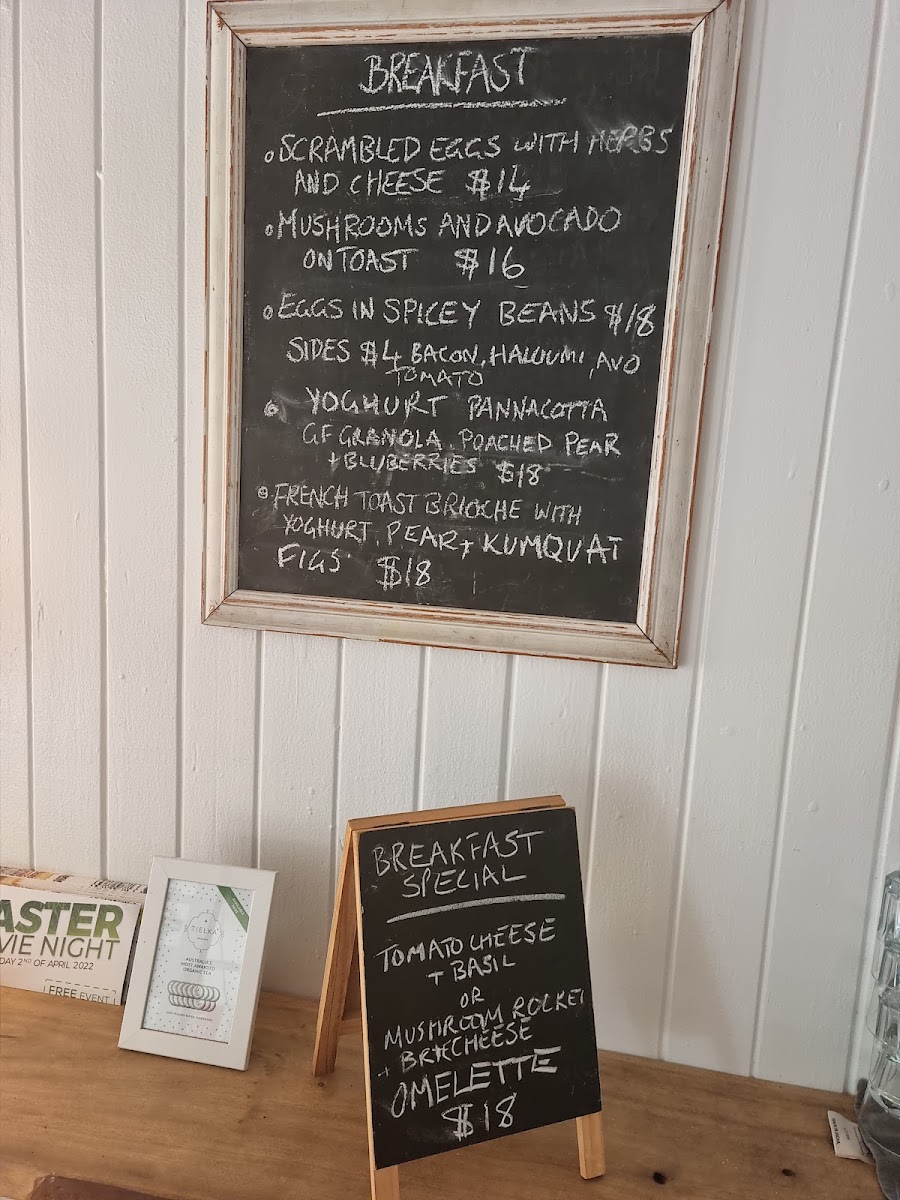 BREAKFAST
SCRAMBLED EGGS WITH HERBS
AND CHEESE $14
MUSHROOMS AND AVOCADO
ON TOAST $16
EGGS IN SPICEY BEANS $18
SIDES $4 BACON, HALOUMI, AVO
TOMATO
YOGHURT PANNACOTTA
GF GRANOLA, POACHED PEAR
+ BLUBERRIES $18
FRENCH TOAST BRIOCHE WITH
YOGHURT, PEAR + KUMQUAT
FIGS $18
BREAKFAST
SPECIAL
TOMATO CHEESE
+ BASIL
OR
MUSHROOM ROCKET
+ BRIE CHEESE
OMELETTE
$18
ASTER
VIE NIGHT
DAY 2ND OF APRIL 2022
FREE EVENT
TIELKA
AUSTRALIA'S
MOST AWARDED
ORGANIC TEA